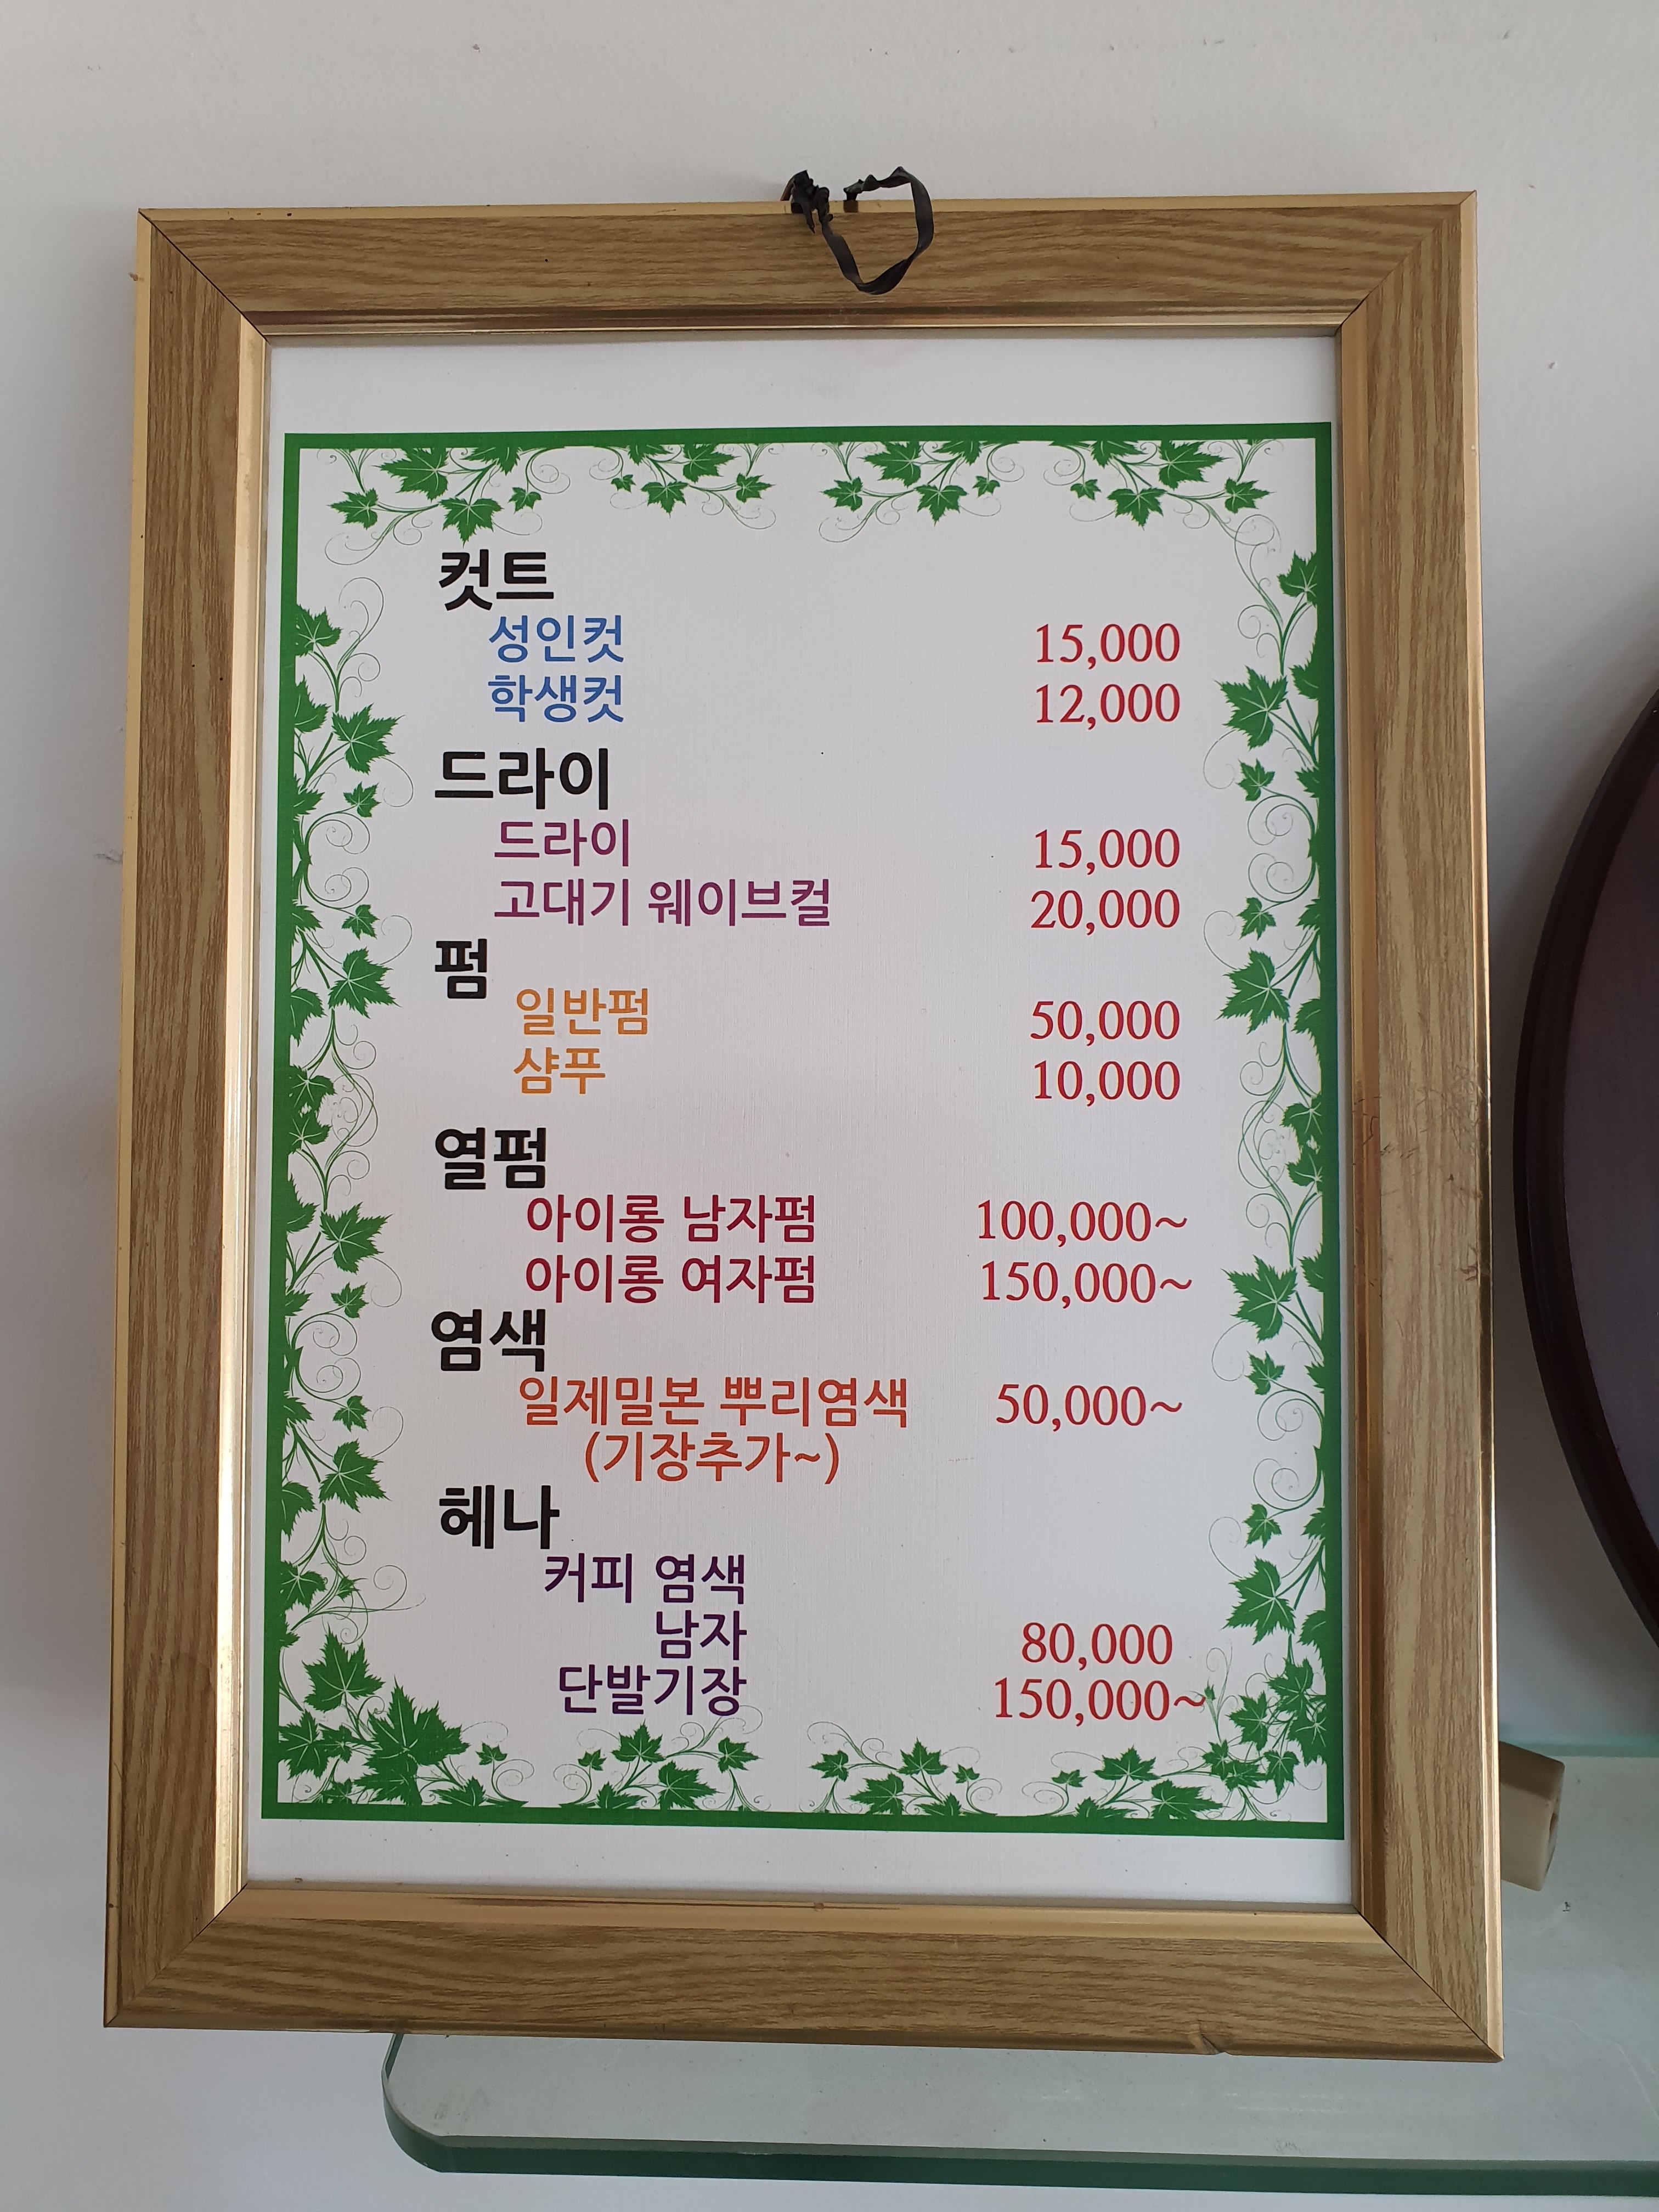 컷트
성인컷 15,000
학생컷 12,000
드라이
드라이 15,000
고대기 웨이브컬 20,000
펌
일반펌 50,000
샴푸 10,000
열펌
아이롱 남자펌 100,000~
아이롱 여자펌 150,000~
염색
일제밀본 뿌리염색 50,000~
(기장추가~)
헤나
커피 염색
남자 80,000
단발기장 150,000~